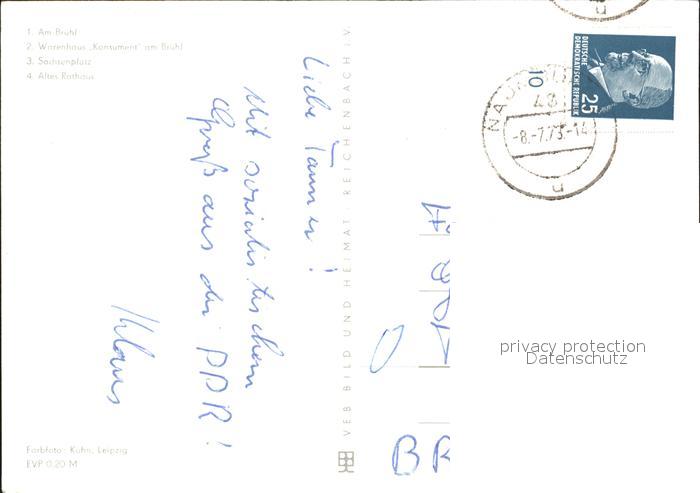 1. Am Brühl
2. Warenhaus „Konsument" am Brühl
3. Sachsenplatz
4. Altes Rathaus
Liebe
Mit sozialistischem
Gruß aus der DDR!
Klaus
VEB BILD UND HEIMAT REICHENBACH i.V.
Farbfoto: Kühn, Leipzig
EVP 0,20 M
DEUTSCHE
DEMOKRATISCHE REPUBLIK
25
10
48
-8.-7.73.-14
privacy protection
Datenschutz